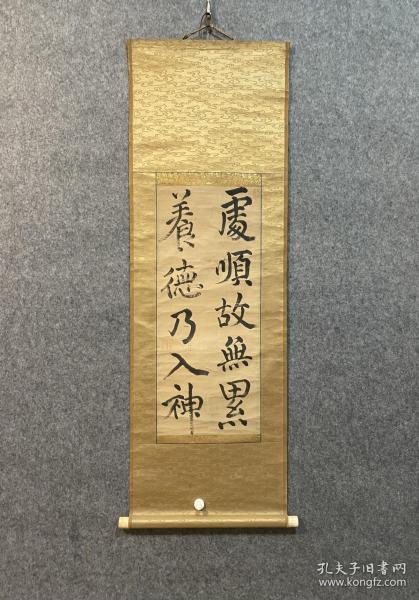 處順故無累
養德乃入神
孔夫子旧书网
www.kongfz.com